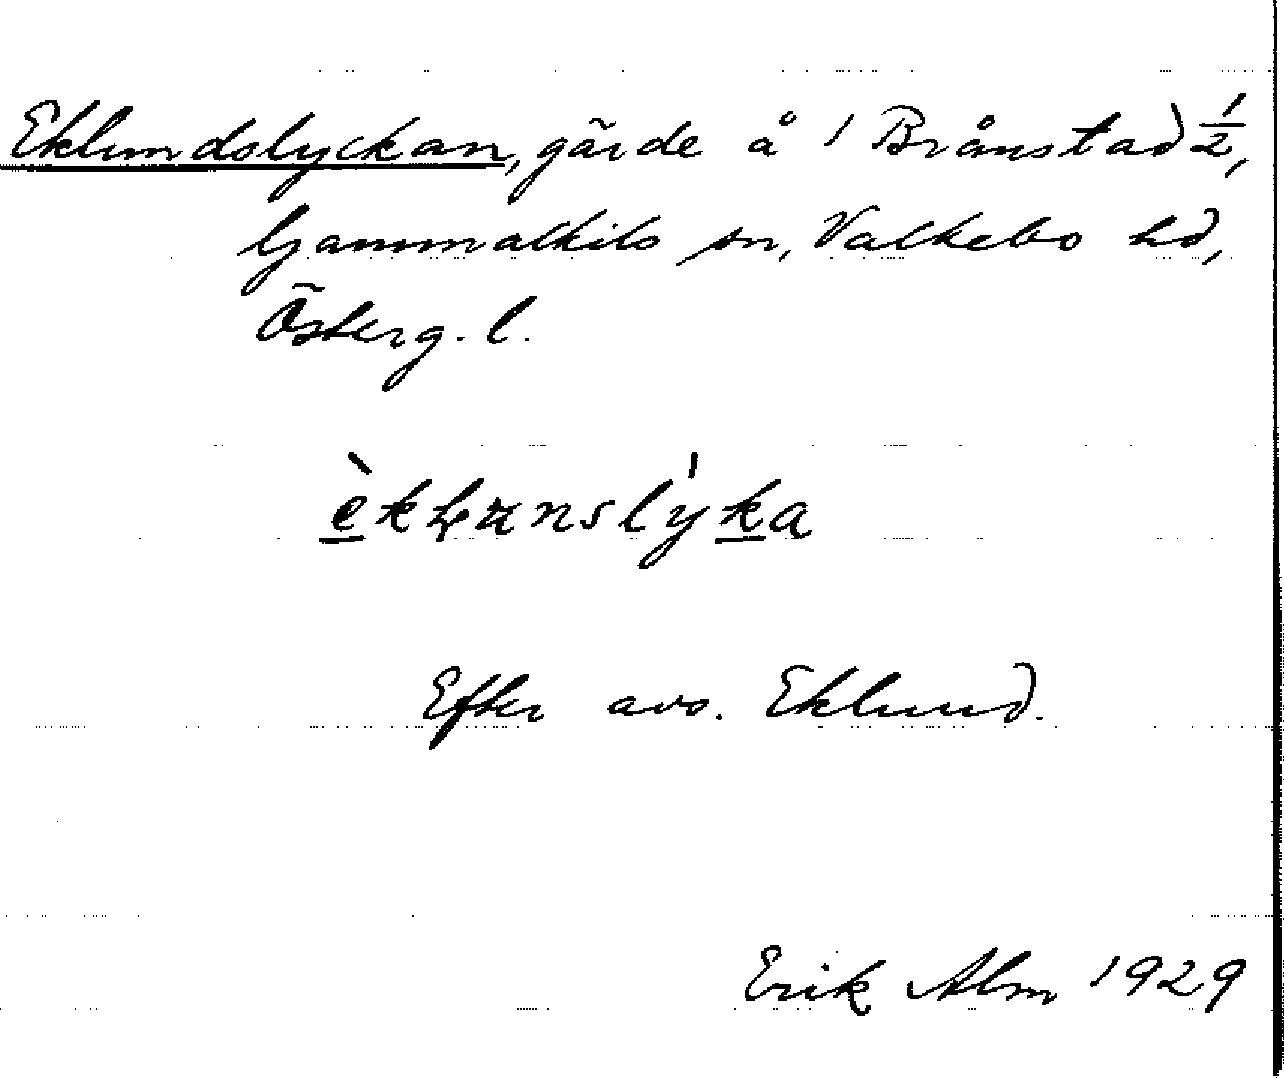 Eklundslyckan, gärde å 1 Brånstad 1/2,
Gammalkils sn, Valkebo hd,
Österg. l.
èkⱡunslýka
Efter avs. Eklund.
Erik Alm 1929